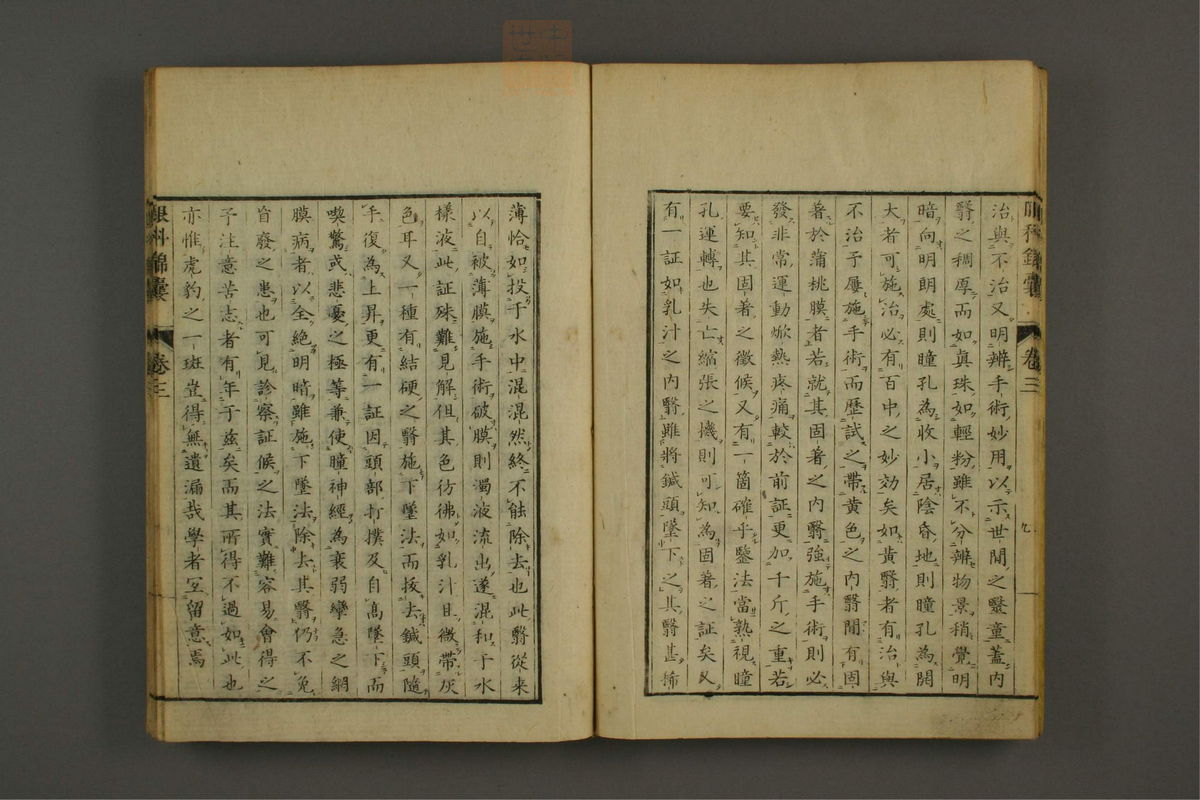 眼科錦囊 卷三 九
治與不治又明辨手術妙用以示世間之瞖童蓋内
翳之稠厚而如眞珠如輕粉雖不分辨物景稍覺明
暗向明朗處則瞳孔為收小居陰昏地則瞳孔為開
大者可施治必有百中之妙効矣如黄翳者有治與
不治予屢施手術而歷試之帶黄色之内翳間有固
著於蒲桃膜者若就其固著之内翳強施手術則必
發非常運動焮熱疼痛較於前証更加千斤之重若
要知其固著之徵候又有一箇確乎鑒法當熟視瞳
孔運轉也失亡縮張之機則可知為固著之証矣又
有一証如乳汁之内翳雖將鍼頭墜下之其翳甚稀
薄恰如投于水中混混然終不能除去也此翳從来
以自被薄膜施手術破膜則濁液流出遂混和于水
樣液此証殊難見解但其色彷彿如乳汁且微帶灰
色耳又一種有結硬之翳施下墜法而拔去鍼頭隨
手復為上昇更有一証因頭部打撲及自高墜下而
喫驚或悲憂之極等兼使瞳神經為衰弱攣急之網
膜病者以全絶明暗雖施下墜法除去其翳仍不免
盲廢之患也可見診察証候之法實難容易會得之
予注意苦志者有年于兹矣而其所得不過如此也
亦惟虎豹之一斑豈得無遺漏哉學者宜留意焉
眼科錦囊 卷三